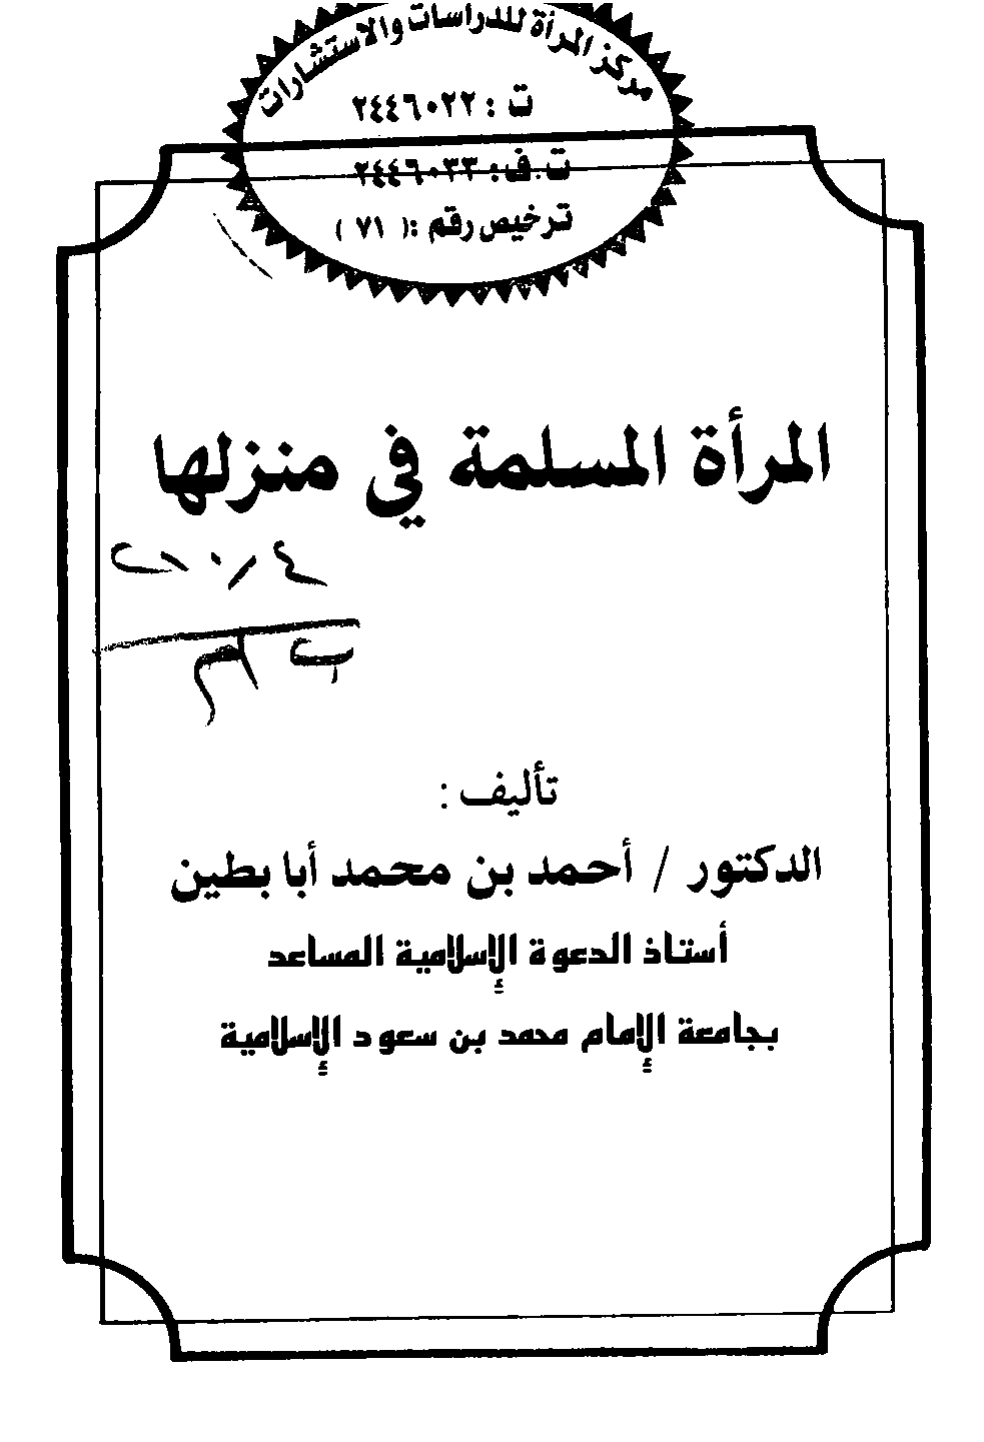 مركز المرأة للدراسات والاستشارات
ت : ٢٤٤٦٠٢٢
ت.ف: ٢٤٤٦٠٣٣
ترخيص رقم :( ٧١ )
المرأة المسلمة في منزلها
تأليف :
الدكتور / أحمد بن محمد أبا بطين
أستاذ الدعوة الإسلامية المساعد
بجامعة الإمام محمد بن سعود الإسلامية